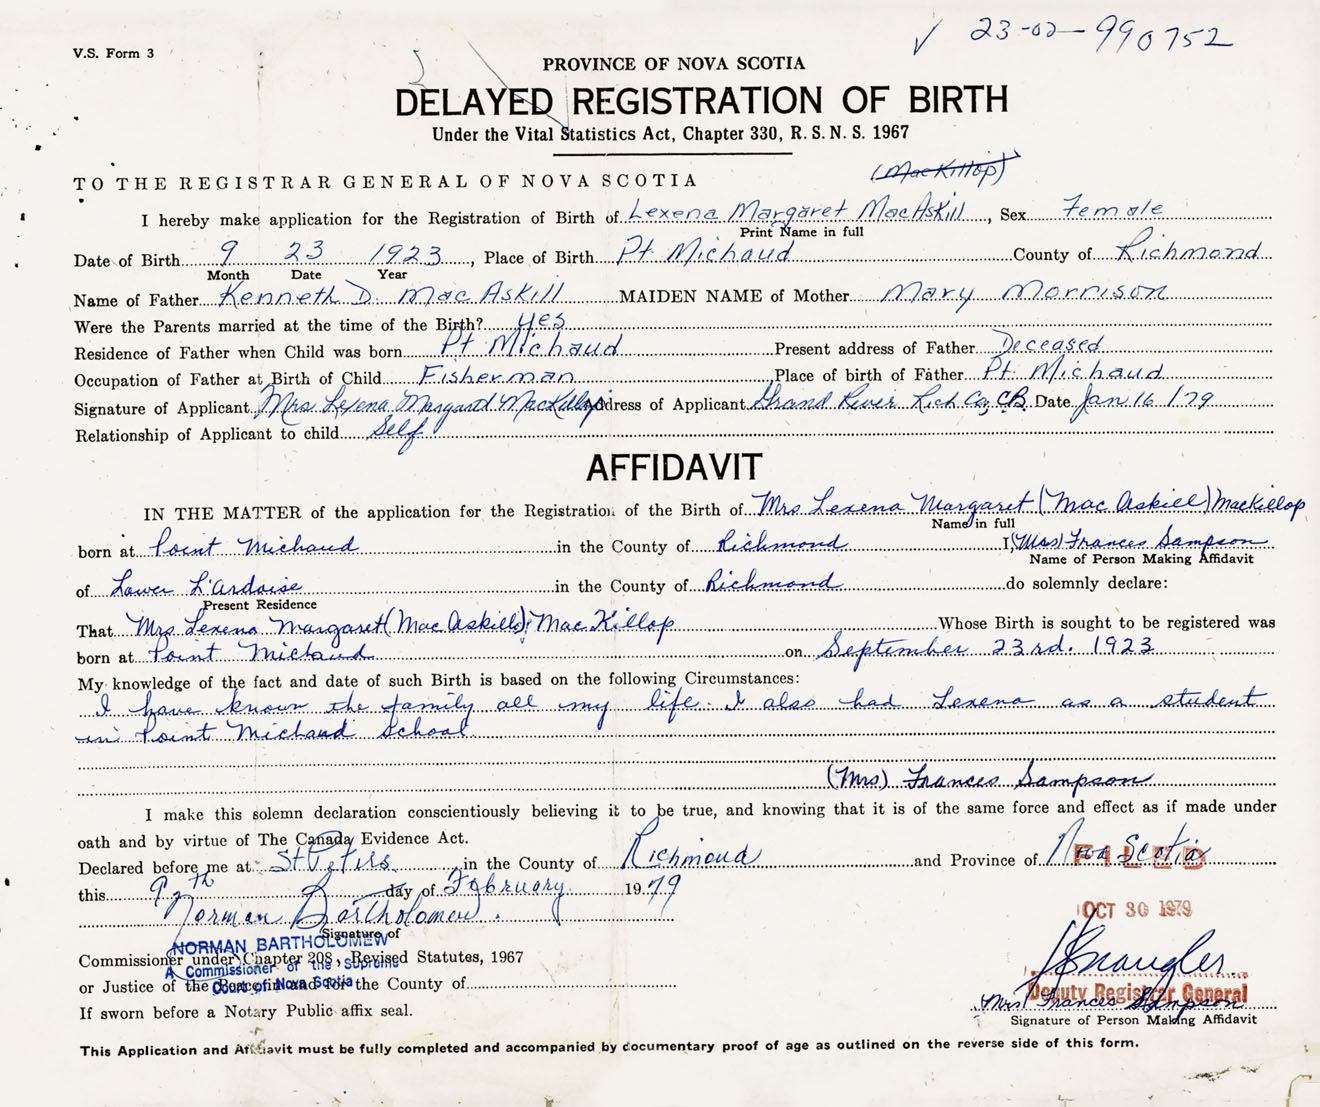 V.S. Form 3
✓ 23-02-990752
PROVINCE OF NOVA SCOTIA
DELAYED REGISTRATION OF BIRTH
Under the Vital Statistics Act, Chapter 330, R.S.N.S. 1967
(MacKillop)
TO THE REGISTRAR GENERAL OF NOVA SCOTIA
I hereby make application for the Registration of Birth of Lexena Margaret MacAskill, Sex Female
Print Name in full
Date of Birth 9 23 1923, Place of Birth Pt. Michaud County of Richmond
Month Date Year
Name of Father Kenneth D. MacAskill MAIDEN NAME of Mother Mary Morrison
Were the Parents married at the time of the Birth? yes
Residence of Father when Child was born Pt Michaud Present address of Father Deceased
Occupation of Father at Birth of Child Fisherman Place of birth of Father Pt. Michaud
Signature of Applicant Mrs Lexena Margaret MacKillop Address of Applicant Grand River Rich Co, C.B. Date Jan 16/79
Relationship of Applicant to child Self
AFFIDAVIT
IN THE MATTER of the application for the Registration of the Birth of Mrs Lexena Margaret (Mac Askill) MacKillop
Name in full
born at Point Michaud in the County of Richmond I, (Mrs) Frances Sampson
Name of Person Making Affidavit
of Lower L'Ardoise in the County of Richmond do solemnly declare:
Present Residence
That Mrs Lexena Margaret (Mac Askill) Mac Killop Whose Birth is sought to be registered was
born at Point Michaud on September 23rd. 1923
My knowledge of the fact and date of such Birth is based on the following Circumstances:
I have known the family all my life. I also had Lexena as a student
in Point Michaud School
(Mrs) Frances Sampson
I make this solemn declaration conscientiously believing it to be true, and knowing that it is of the same force and effect as if made under
oath and by virtue of The Canada Evidence Act.
Declared before me at St Peters in the County of Richmond and Province of Nova Scotia
FILED
this 9th day of February 1979
OCT 30 1979
Norman Bartholomew.
Signature of
NORMAN BARTHOLOMEW
A Commissioner of the Supreme
Court of Nova Scotia
Commissioner under Chapter 208, Revised Statutes, 1967
or Justice of the Peace in and for the County of
Deputy Registrar General
Mrs Frances Sampson
If sworn before a Notary Public affix seal.
Signature of Person Making Affidavit
This Application and Affidavit must be fully completed and accompanied by documentary proof of age as outlined on the reverse side of this form.